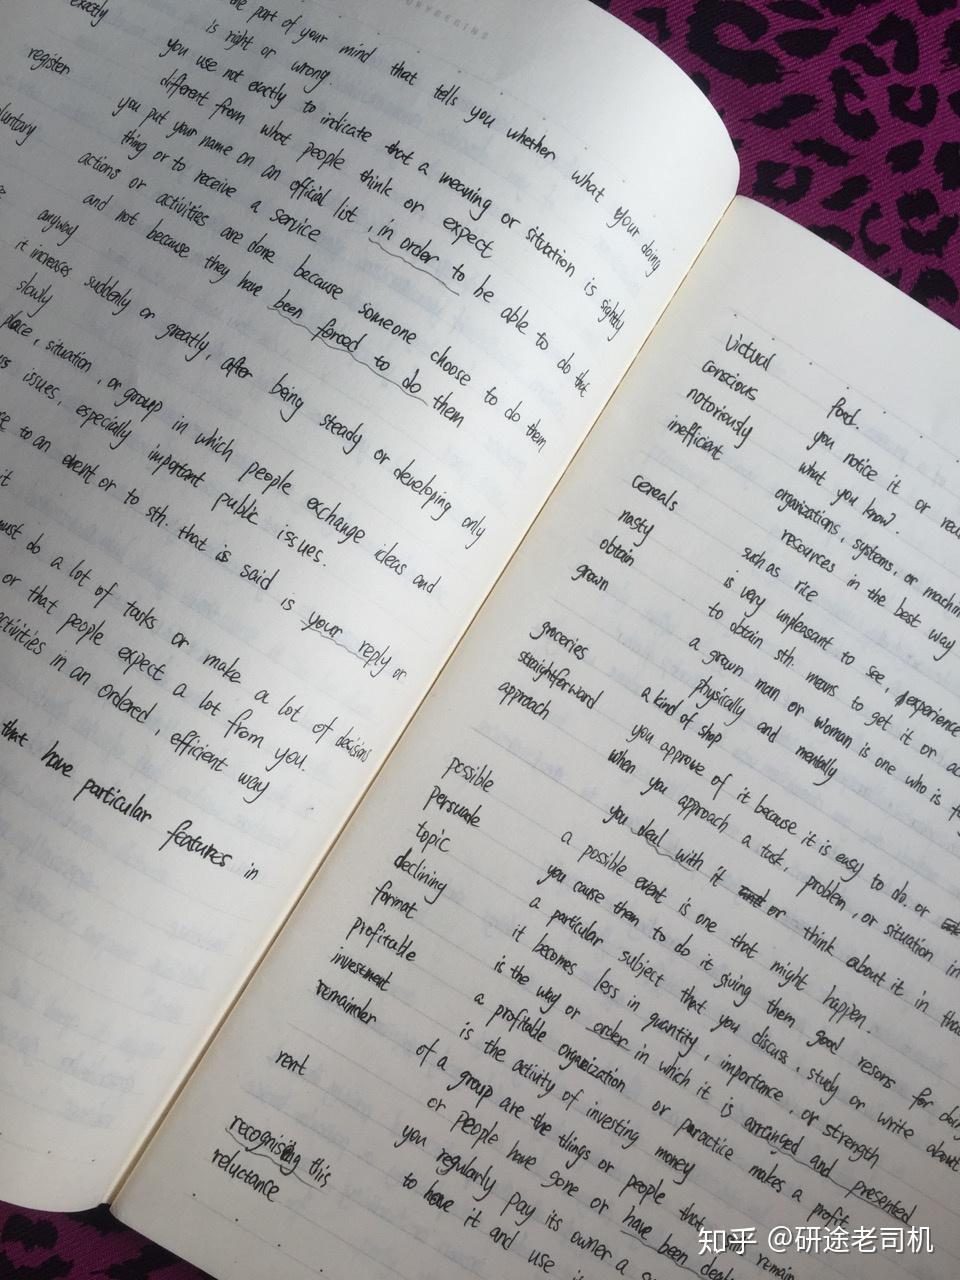 the part of your mind that tells you whether what your doing
is right or wrong.
exactly you use not exactly to indicate that a meaning or situation is slightly
different from what people think or expect
register you put your name on an official list, in order to be able to do that
thing or to receive a service
actions or activities are done because someone choose to do them
and not because they have been forced to do them
anyway
it increases suddenly or greatly, after being steady or developing only
slowly
place, situation, or group in which people exchange ideas and
issues, especially important public issues.
to an event or to sth. that is said is your reply or
it
must do a lot of tasks or make a lot of decisions
or that people expect a lot from you.
activities in an ordered, efficient way
that have particular features in
victual food.
conscious you notice it or
notoriously what you know.
inefficient organizations, systems, or
resources in the best way
cereals such as rice
nasty is very unpleasant to see, experience
obtain to obtain sth. means to get it or
grown a grown man or woman is one who is
physically and mentally
groceries a kind of shop
straightforward you approve of it because it is easy to do. or
approach when you approach a task, problem, or situation in
you deal with it or think about it in that
possible a possible event is one that might happen.
persuade you cause them to do it giving them good resons for doing
topic a particular subject that you discuss, study or write about
declining it becomes less in quantity, importance, or strength
format is the way or order in which it is arranged and presented
profitable a profitable organization or practice makes a profit
investment is the activity of investing money
remainder of a group are the things or people that
or people have gone or have been
rent you regularly pay its owner a
to have it and use
recognising this
reluctance
知乎 @研途老司机